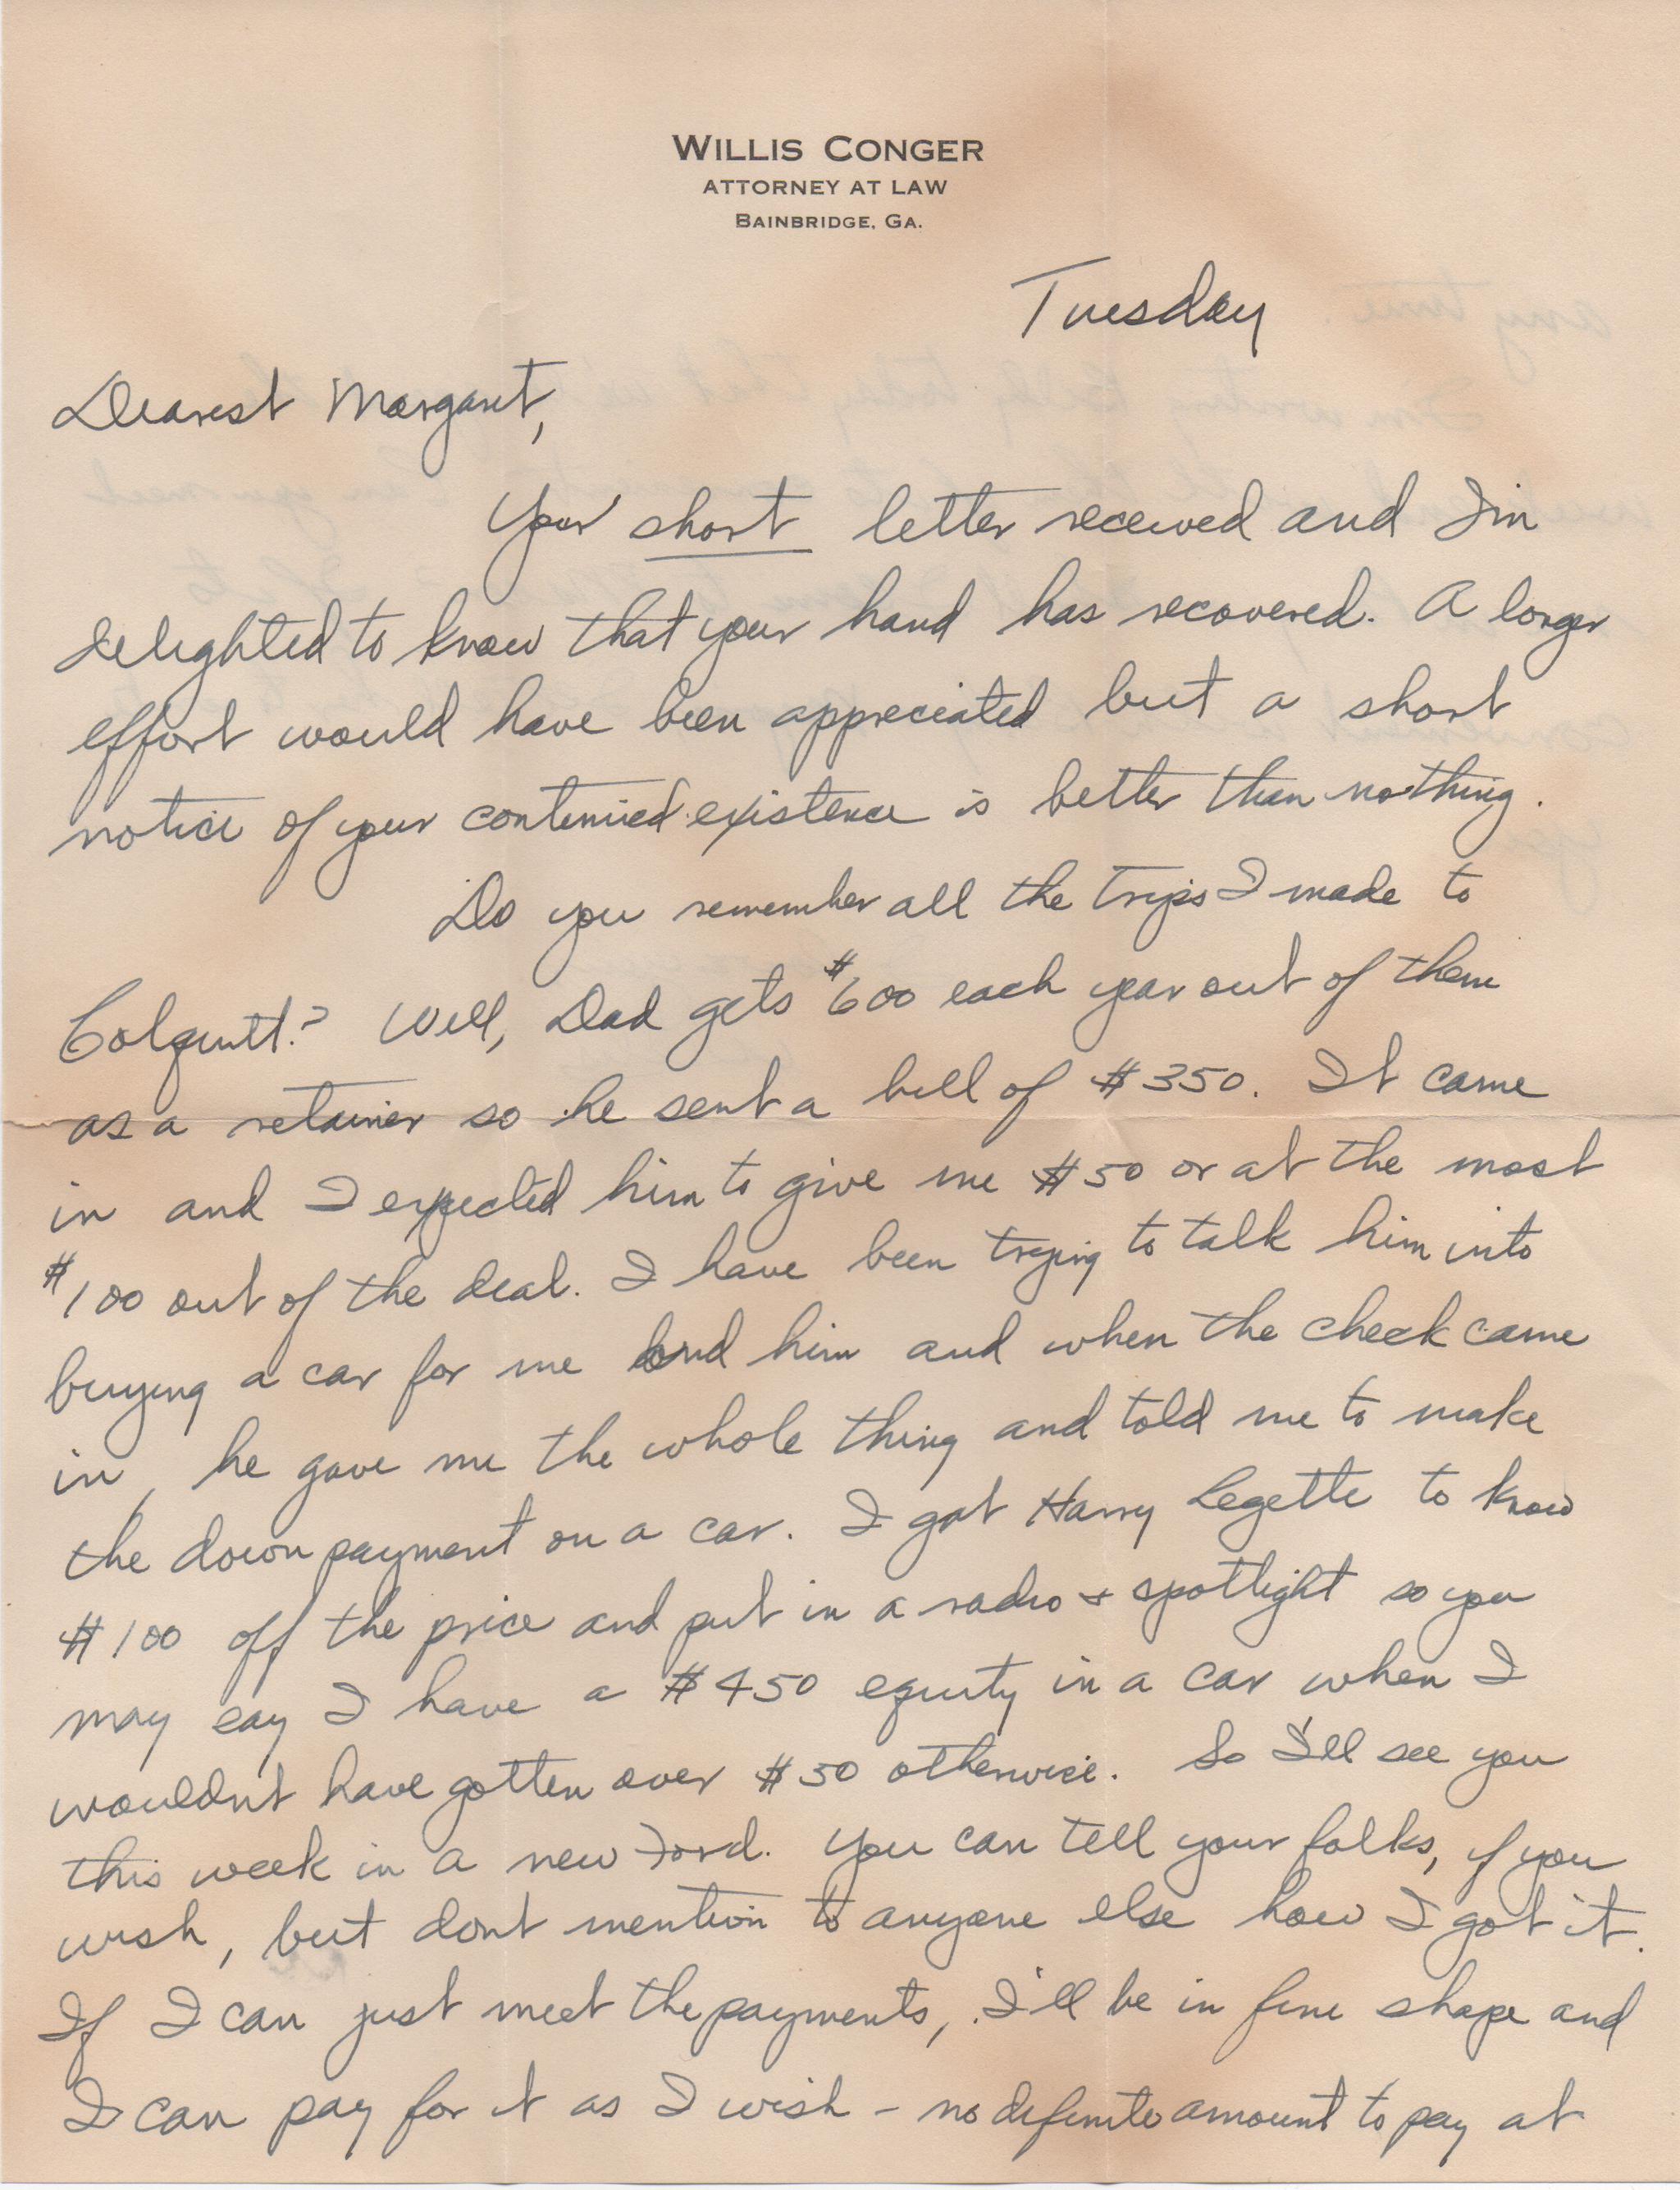 WILLIS CONGER
ATTORNEY AT LAW
BAINBRIDGE, GA.
Tuesday
Dearest Margaret,
Your short letter received and I'm
delighted to know that your hand has recovered. A longer
effort would have been appreciated but a short
notice of your continued existence is better than nothing.
Do you remember all the trips I made to
Colquitt? Well, Dad gets $600 each year out of them
as a retainer so he sent a bill of $350. It came
in and I expected him to give me $50 or at the most
$100 out of the deal. I have been trying to talk him into
buying a car for me and him and when the check came
in, he gave me the whole thing and told me to make
the down payment on a car. I got Harry Legette to know
$100 off the price and put in a radio + spotlight so you
may say I have a $450 equity in a car when I
wouldn't have gotten over $50 otherwise. So I'll see you
this week in a new Ford. You can tell your folks, if you
wish, but dont mention to anyone else how I got it.
If I can just meet the payments, I'll be in fine shape and
I can pay for it as I wish - no definite amount to pay at